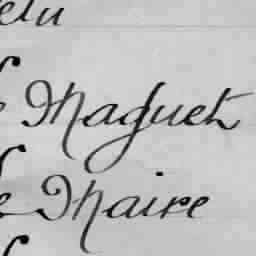 elu
Maguet
Maire